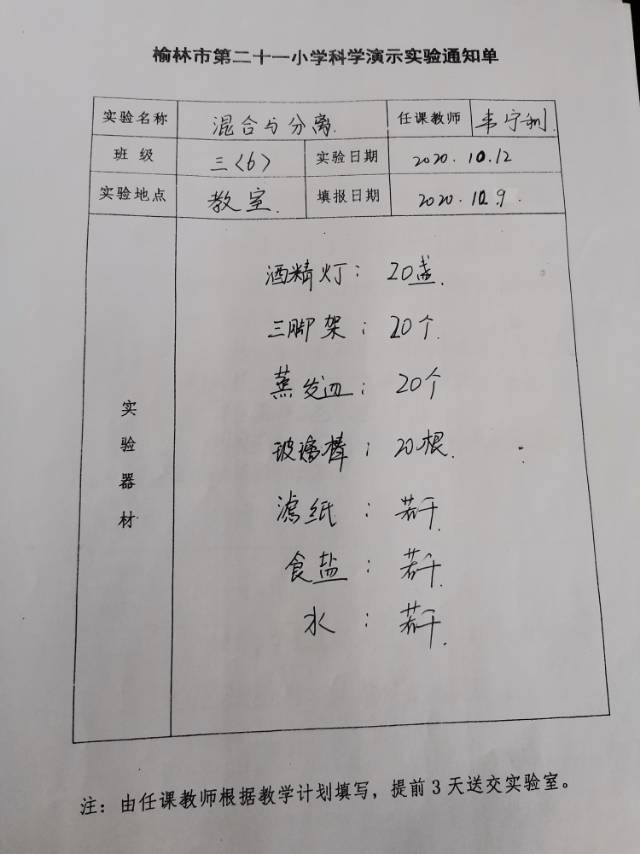 榆林市第二十一小学科学演示实验通知单
实验名称 混合与分离. 任课教师
班级 三〈6〉 实验日期 2020.10.12
实验地点 教室. 填报日期 2020.10.9
实验器材
酒精灯： 20盏.
三脚架： 20个.
蒸发皿： 20个
玻璃棒： 20根.
滤纸 ： 若干.
食盐 ： 若干.
水 ： 若干.
注：由任课教师根据教学计划填写，提前3天送交实验室。